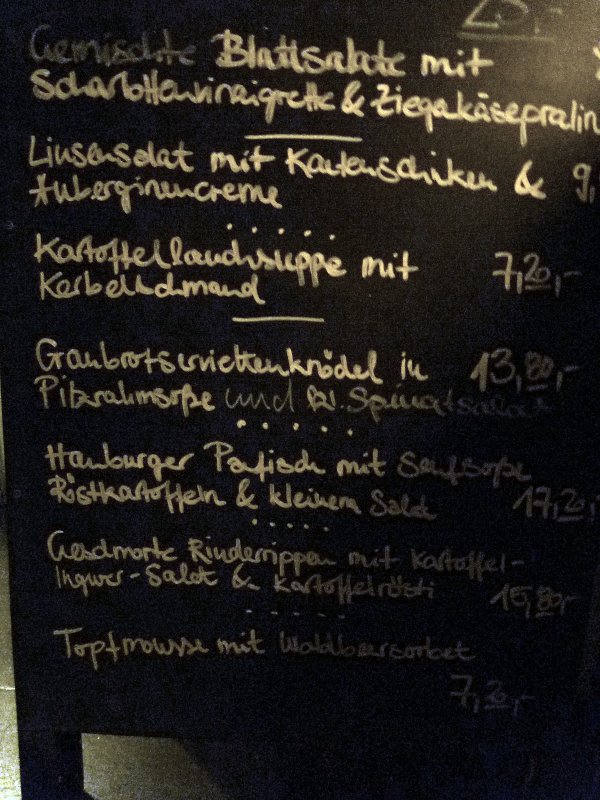 Gemischte Blattsalate mit
Scharlottenvinaigrette & Ziegenkäsepralin
Linsensalat mit Kartenschinken & 9,
Auberginencreme
Kartoffellauchsuppe mit 7,20,-
Kerbelschmand
Graubrotserviettenknödel in 13,80,-
Pilzrahmsoße und kl. Spinatsalat
Hamburger Panfisch mit Senfsoße
Röstkartoffeln & kleinem Salat 17,20,-
Geschmorte Rinderrippen mit Kartoffel-
Ingwer-Salat & Kartoffelrösti 15,80,-
Topfmousse mit Waldbeersorbet
7,20,-